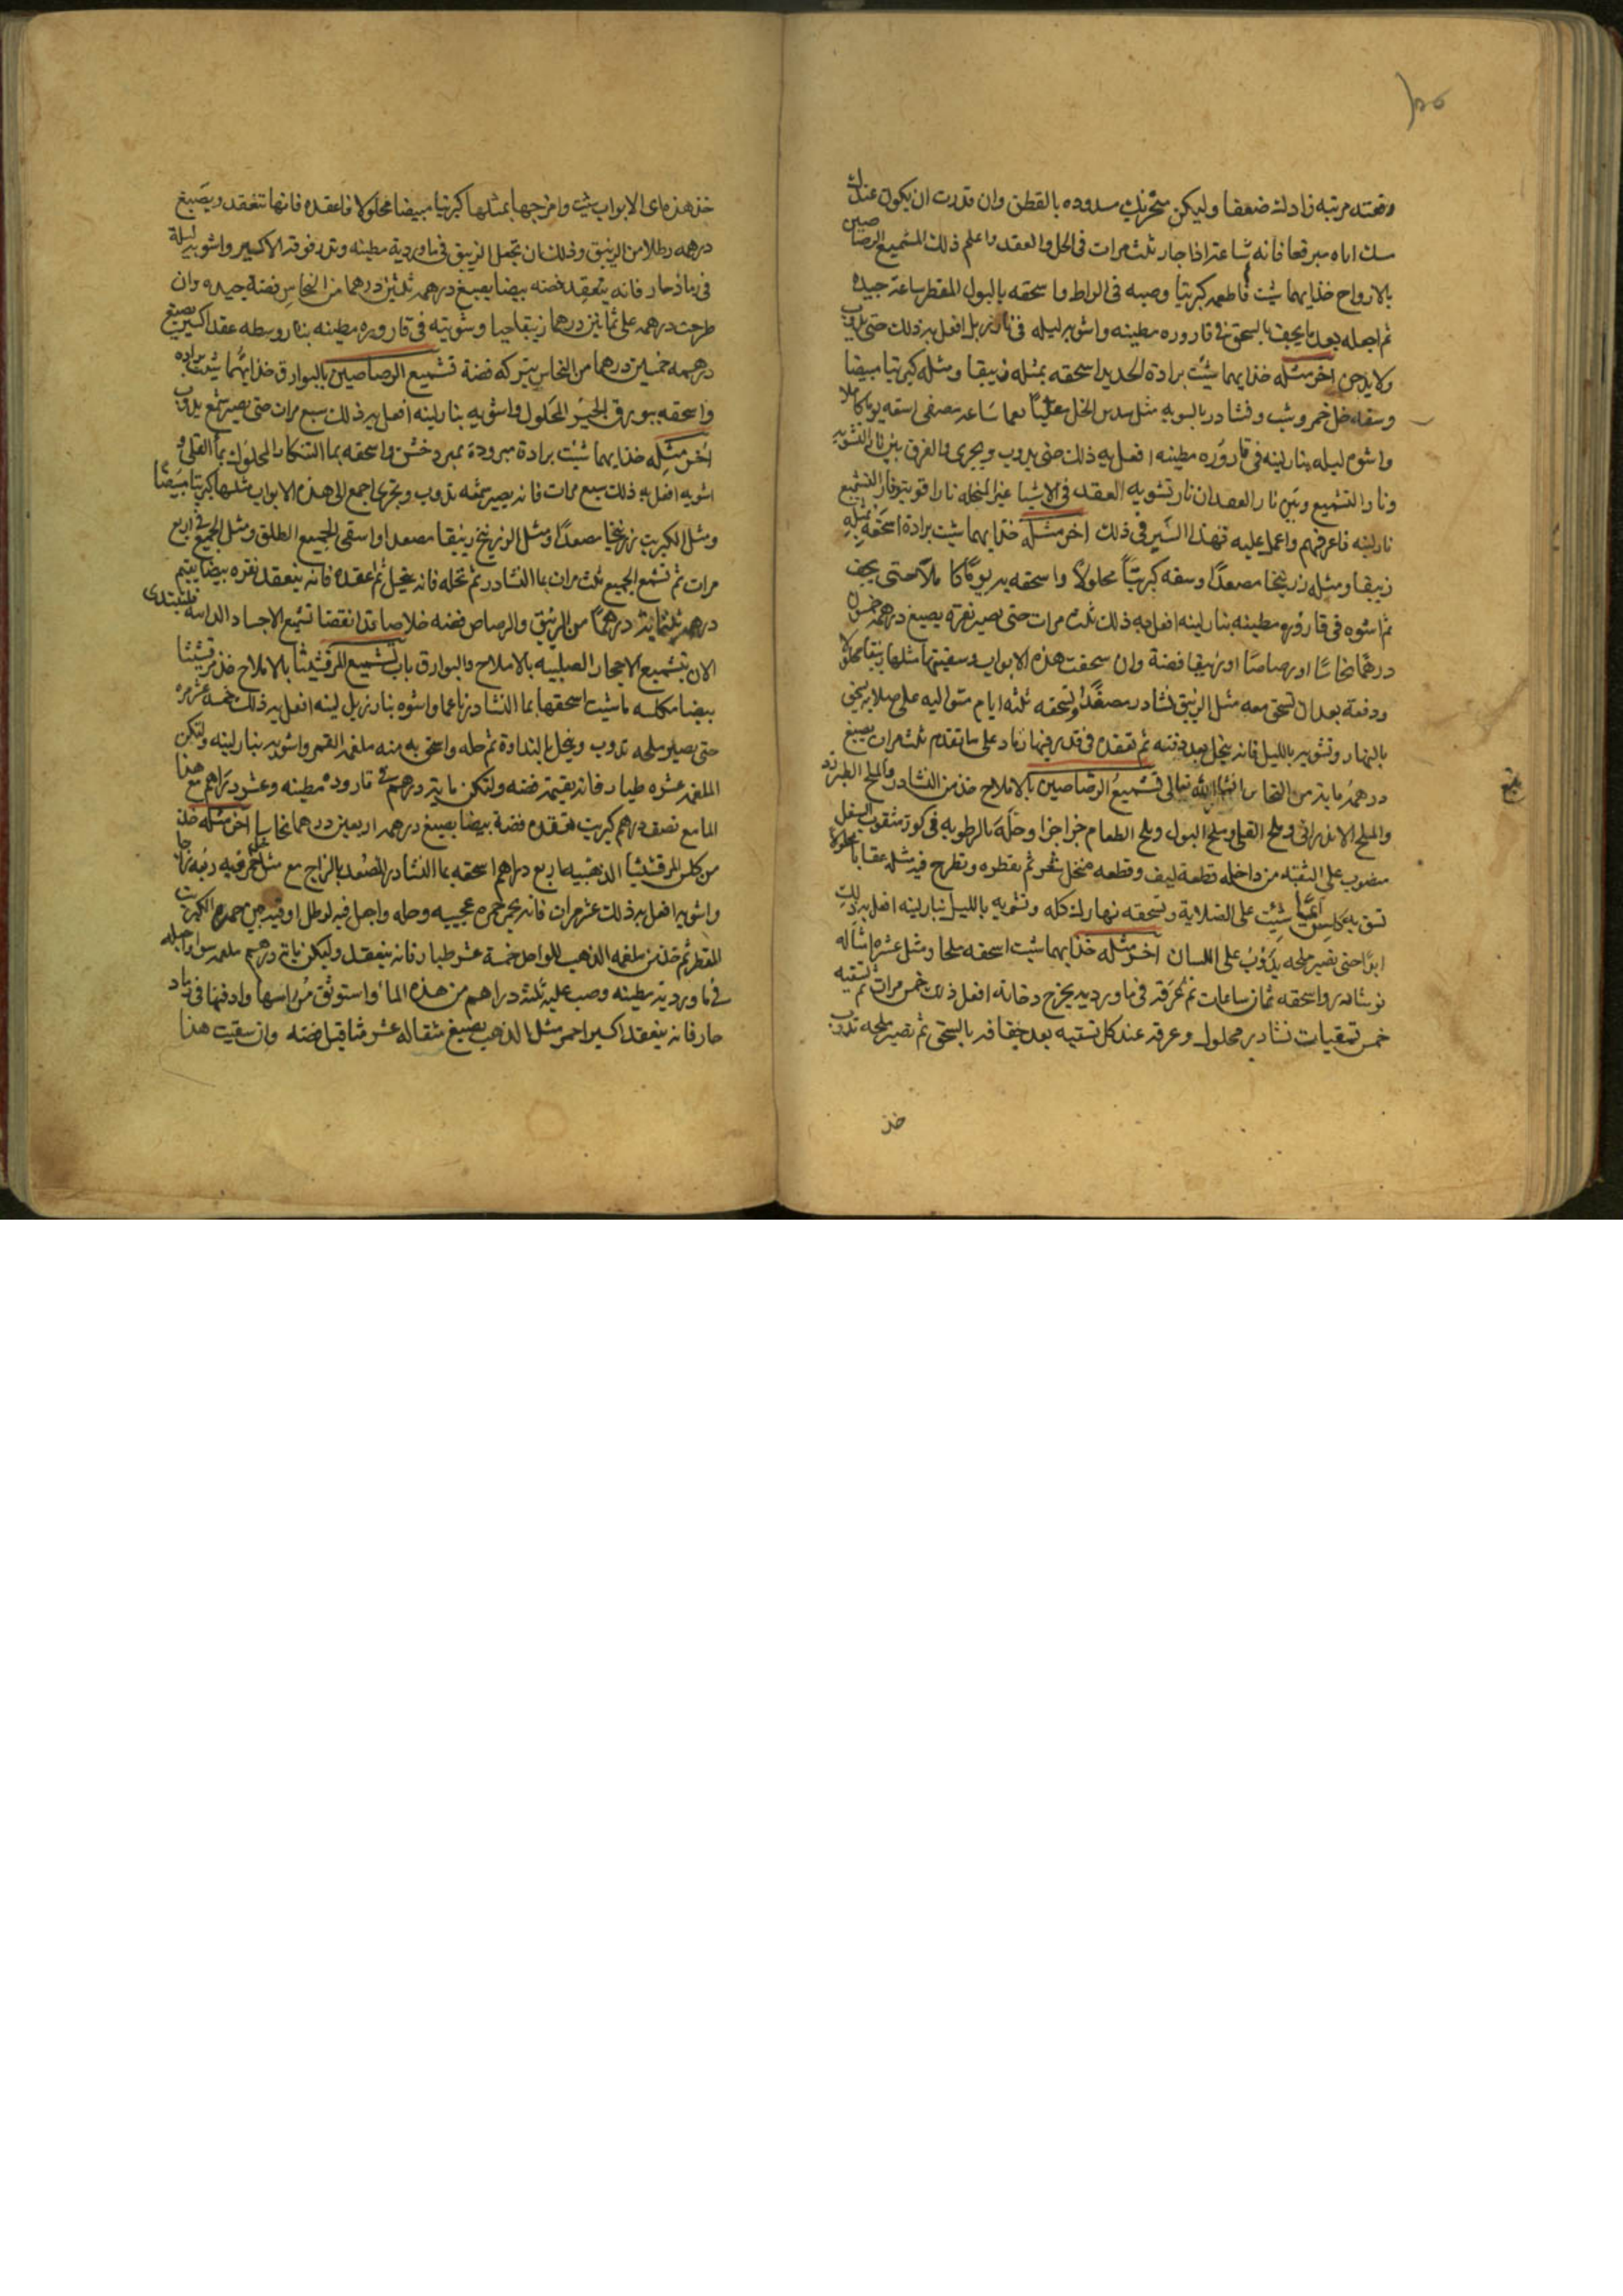 وقعته مرتبه زادلة ضعفا وليكن منخزيك مسدوده بالقطن وان قدرت ان يكون عندك
اذا جاز ثلث مرات فى الحل والعقد واعلم ذلك التشميع الرصاصين
بالارواح خذ ايهما شيت فاطعمه كبريتا وصبه فى الراط واسحقه بالبول المقطر ساعة جيده
ثم اجعله بعد ما يجف بالسحق فى قاروره مطينه واشويه ليله فى نار زبل افعل به ذلك حتى يذوب
ولا يدخن اخر مثله خذ ايهما شيت برادة الحديد اسحقه بمثله زيبقا ومثله كبريتا مبيضا
وسقه خل خمر وشب ونشادر بالسويه مثل سدس الخل مصفى اسقه يوما كاملا
واشوه ليله بنار لينه فى قاروره مطينه افعل به ذلك حتى يذوب ويجرى والفرق بين نار التشويه
ونار التشميع وبين نار العقد ان نار تشويه العقد فى الاشيا غير المنحله نارا قويه ونار التشميع
نار لينه فاعرفهم واعمل عليه فهذا السير فى ذلك اخر مثله خذ ايهما شيت برادة اسحقه بمثله
زيبقا ومثله زرنيخا مصعدا وسقه كبريتا محلولا واسحقه به يوما كاملا حتى يجف
ثم اشوه فى قاروره مطينه بنار لينه افعل به ذلك ثلث مرات حتى يصير نقرة يصبغ درهمه خمسون
درهما نحاسا او رصاصا او زيبقا فضة وان سحقت هذه الابواب وسقيتها مثلها زيبقا محلولا
ودفعة بعد ان تسحق معه مثل الزيبق نشادر مصعدا وتسحقه ثلثه ايام متواليه على صلايه يسحق
بالنهار وتشويه بالليل فانه ينحل بعد دفنه ثم تعقده فى قدر فيها رماد على ما تقدم ثلث مرات يصبغ
درهمه مايه من النحاس انشا الله تعالى تشميع الرصاصين بالاملاح خذ من النشادر والملح الطبرزد
والملح الاندرانى وملح القلى وملح البول وملح الطعام جزا جزا وحله بالرطوبه فى كوز مثقوب السفل
مضروب على الثقبه من داخله قطعة ليف وقطعه منخل شعر ثم تقطره وتطرح فيه مثله عقابا محلولا
تسق به كلس ايما شيت على الصلاية وتسحقه نهارك كله وتشويه بالليل بنار لينه افعل به ذلك
ابدا حتى تصير ملحه يذوب على اللسان اخر مثله خذ ايهما شيت اسحقه ملحا ومثل عشره امثاله
نوشادر واسحقه ثمان ساعات ثم غرقه فى ماورديه يخرج دخانه افعل ذلك خمس مرات ثم تسقيه
خمس تسقيات نشادر محلول وعرقه عند كل تسقيه بعد جفافه بالسحق ثم تصير ملحه تذوب
خذ
خذ هذه اى الابواب شيت وامزجها بمثلها كبريتا مبيضا محلولا فاعقده فانها تنعقد ويصبغ
درهمه رطلا من الزيبق وذلك ان تجعل الزيبق فى ماوردية مطينه وتذر فوقه الاكسير واشويه ليلة
فى رماد حار فانه ينعقد فضه بيضا يصبغ درهمه ثلثين درهما من النحاس فضة جيده وان
طرحت درهمه على ثمانين درهما زيبقا حيا وشويته فى قاروره مطينه بنار وسطه عقد اكسير يصبغ
درهمه خمسين درهما من النحاس يتركه فضة تشميع الرصاصين بالبوارق خذ ايهما شيت براده
واسحقه ببورق الخبز المحلول واشويه بنار لينه افعل به ذلك سبع مرات حتى يصير شمع يذوب
اخر مثله خذ ايهما شيت برادة مبرودة بمبرد خشن واسحقه بما التنكار المحلول بما القلى و
اشويه افعل به ذلك سبع مرات فانه يصير شمعه تذوب ويجرى اجمع الى هذه الابواب مثلها كبريتا مبيضا
ومثل الكبريت زرنيخا مصعدا ومثل الزرنيخ زيبقا مصعدا واسقى الجميع الطلق ومثل الجميع فى اربع
مرات ثم تشمع الجميع ثلث مرات بما النشادر ثم تحله فانه ينحل ثم اعقده فانه ينعقد نقره بيضا يقيم
درهمه ثلثمايه درهما من الزيبق والرصاص فضه خلاصا قد انقضا تشميع الاجساد الدايبه فلنبتدى
الان بتشميع الاحجار الصلبيه بالاملاح والبوارق باب تشميع المرقشيثا بالاملاح خذ مرقشيثا
بيضا مكلسه ما شيت اسحقها بما النشادر ناعما واشوه بنار زبل لينه افعل به ذلك خمسة عشر مره
حتى يصير ملحه تذوب وينحل بالنداوة ثم حله واسحق به منه ملغمة القمر واشويه بنار لينه ولتكن
الملغمه عشره طيار فانه يقيمه فضه ولتكن مايه درهم فى قاروره مطينه وعشر دراهم من هذا
الما مع نصف درهم كبريت تعقده فضة بيضا يصبغ درهمه اربعين درهما نحاسا اخر مثله خذ
من كلس المرقشيثا الذهبيه ما ربع دراهم اسحقه بما النشادر المصعد بالزاج مع مثله خمر وفيه ربعه زاجا
واشويه افعل به ذلك عشر مرات فانه يحمر حمره عجيبه وحله واجعل فيه لرطل اوقيه من حمرة الكبريت
المقطر ثم خذ من ملغمه الذهب للواحد خمسة عشر طيار فانه ينعقد وليكن مايه درهم ملغمه سوا واجعله
فى ماوردية مطينه وصب عليه ثلثة دراهم من هذه الما واستوثق من راسها وادفنها فى رماد
حار فانه ينعقد اكسير احمر مثل الذهب يصبغ مثقاله عشر مثاقيل فضه وان سقيت هذا